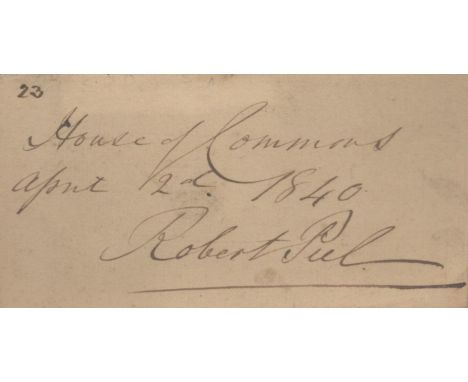 23
House of Commons
April 2d. 1840
Robert Peel